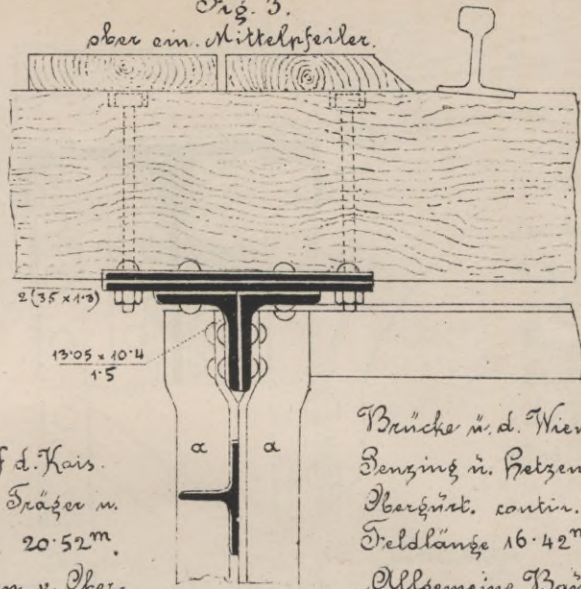 Fig. 3.
ober ein. Mittelpfeiler.
2(35 × 1·3)
13·05 × 10·4
1·5
α α
d. Kais.
Träger u.
20·52m.
v. Ober-
Brücke ü. d. Wien
Penzing u. Hetzen
Obergurt. contin.
Feldlänge 16·42m
Allgemeine Bau